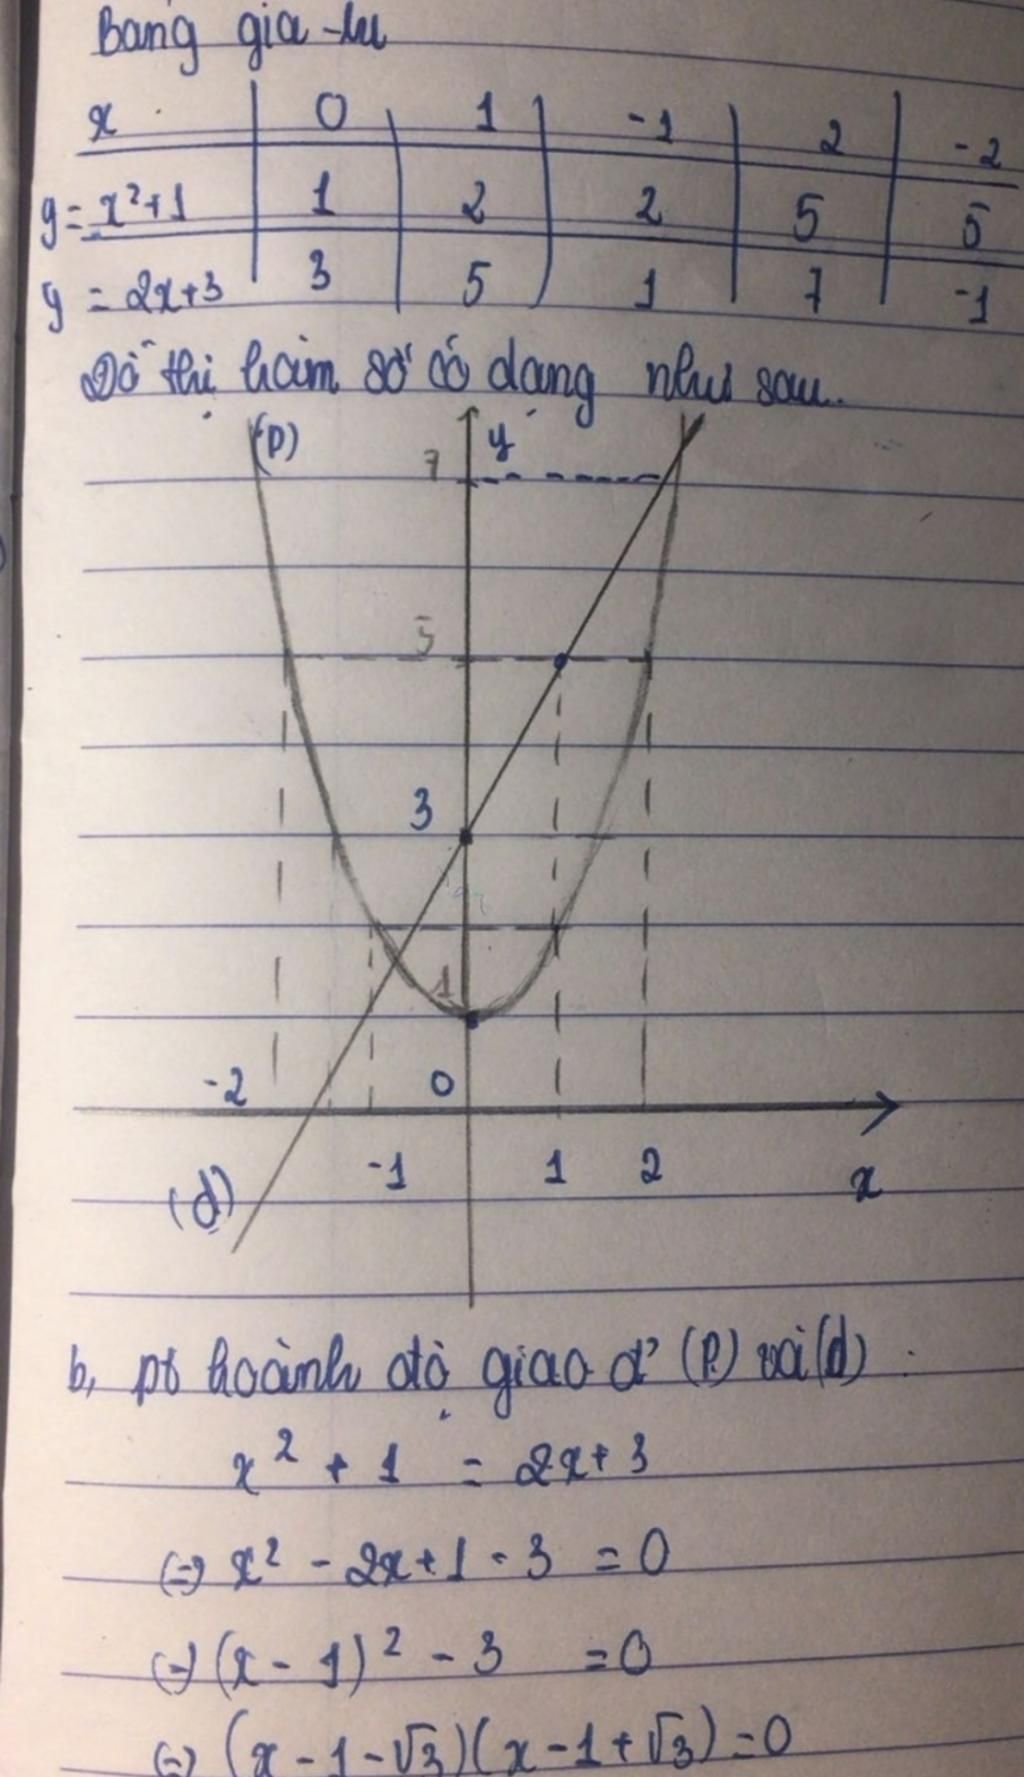 Bảng giá trị
x 0 1 -1 2 -2
y = x²+1 1 2 2 5 5
y = 2x+3 3 5 1 7 -1
Đồ thị hàm số có dạng như sau.
(P) y
7
5
3
1
-2 0
-1 1 2 x
(d)
b, pt hoành độ giao đ' (P) và (d) :
x² + 1 = 2x+3
(=) x² - 2x+1 - 3 = 0
(=) (x - 1)² - 3 = 0
(=) (x - 1 - √3)(x - 1 + √3) = 0